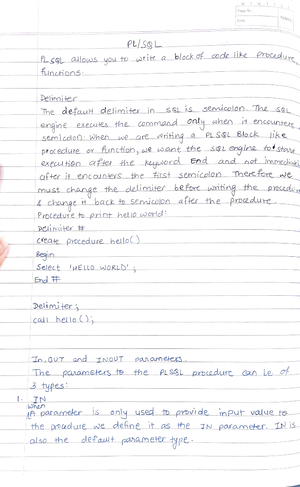 PL/SQL
PL SQL allows you to write a block of code like procedure,
functions.
Delimiter
The default delimiter in SQL is semicolon. The SQL
engine executes the command only when it encounters
semicolon. When we are writing a PLSQL Block like
procedure or function, we want the SQL engine to start
execution after the keyword End and not immediately
after it encounters the first semicolon. Therefore we
must change the delimiter before writing the procedure
& change it back to semicolon after the procedure.
Procedure to print hello world:
Delimiter #
Create procedure hello()
Begin
Select 'HELLO WORLD';
End #
Delimiter;
call hello();
In, OUT and INOUT parameters.
The parameters to the PLSQL procedure can be of
3 types:
1. IN
When
A parameter is only used to provide input value to
the procedure we define it as the IN parameter. IN is
also the default parameter type.